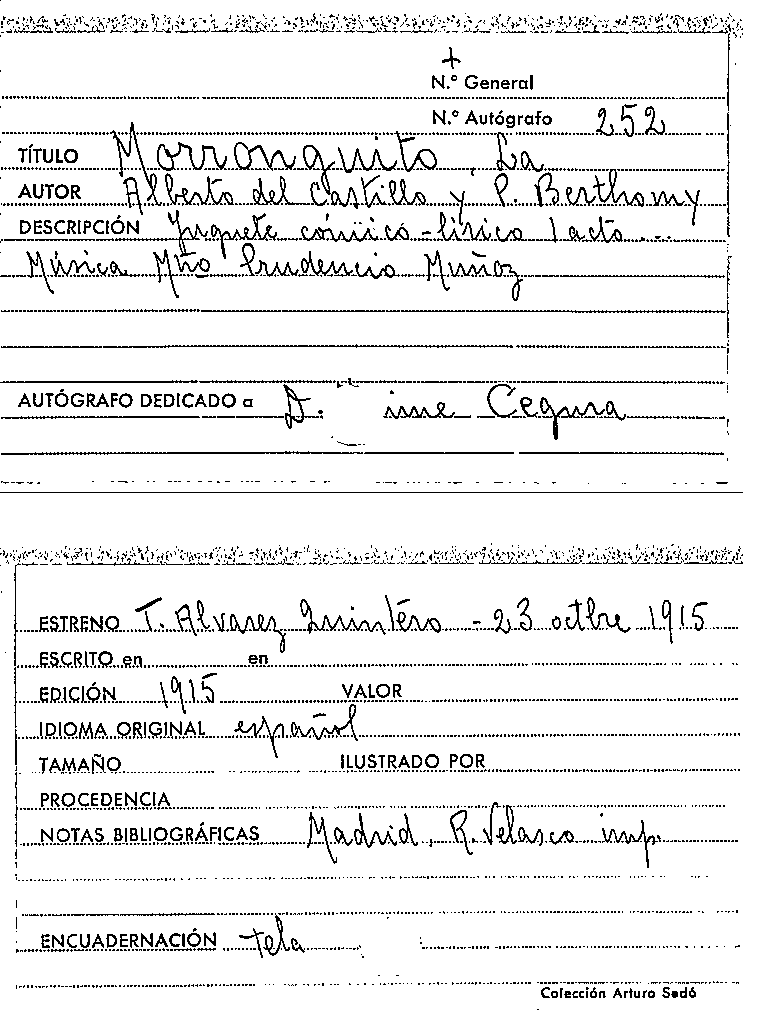 +
N.º General
N.º Autógrafo 252
TÍTULO Morronguito, La
AUTOR Alberto del Castillo y P. Berthomy
DESCRIPCIÓN Juguete cómico-lírico 1 acto...
Música Mtro Prudencio Muñoz
AUTÓGRAFO DEDICADO a D. ime Cegura
ESTRENO T. Alvarez Quintero - 23 octbre 1915
ESCRITO en en
EDICIÓN 1915 VALOR
IDIOMA ORIGINAL español
TAMAÑO ILUSTRADO POR
PROCEDENCIA
NOTAS BIBLIOGRÁFICAS Madrid, R. Velasco imp.
ENCUADERNACIÓN tela
Colección Arturo Sedó